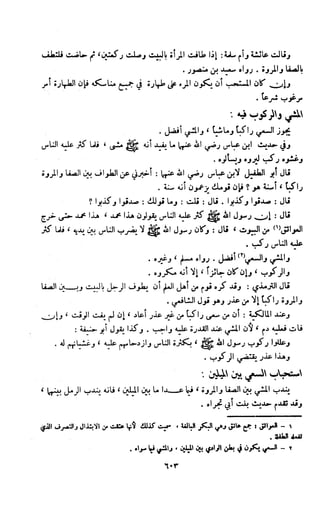 وقالت عائشة وأم سلمة: إذا طافت المرأة بالبيت وصلت ركعتين، ثم حاضت فلتطف
بالصفا والمروة. رواه سعيد بن منصور.
وإن كان المستحب أن يكون المرء على طهارة في جميع مناسكه فإن الطهارة أمر
مرغوب شرعا.
المشي والركوب فيه:
يجوز السعي راكبا وماشيا، والمشي أفضل.
وفي حديث ابن عباس رضي الله عنهما ما يفيد أنه ﷺ مشى، فلما كثر عليه الناس
وغشوه ركب ليروه ويسألوه.
قال أبو الطفيل لابن عباس رضي الله عنهما: أخبرني عن الطواف بين الصفا والمروة
راكبا، أسنة هو؟ فإن قومك يزعمون أنه سنة.
قال: صدقوا وكذبوا. قال: قلت: وما قولك: صدقوا وكذبوا؟
قال: إن رسول الله ﷺ كثر عليه الناس يقولون هذا محمد، هذا محمد حتى خرج
العواتق(١) من البيوت، قال: وكان رسول الله ﷺ لا يضرب الناس بين يديه، فلما كثر
عليه الناس ركب.
والمشي والسعي(٢) أفضل. رواه مسلم، وغيره.
والركوب، وإن كان جائزا، إلا أنه مكروه.
قال الترمذي: وقد كره قوم من أهل العلم أن يطوف الرجل بالبيت وبين الصفا
والمروة راكبا إلا من عذر وهو قول الشافعي.
وعند المالكية: أن من سعى راكبا من غير عذر أعاد، إن لم يفت الوقت، وإن
فات فعليه دم، لأن المشي عند القدرة عليه واجب. وكذا يقول أبو حنيفة:
وعللوا ركوب رسول الله ﷺ، بكثرة الناس وازدحامهم عليه، وغشيانهم له.
وهذا عذر يقتضي الركوب.
استحباب السعي بين الميلين:
يندب المشي بين الصفا والمروة، فيما عدا ما بين الميلين، فانه يندب الرمل بينهما،
وقد تقدم حديث بنت أبي تجراه.
١ - العواتق: جمع عاتق وهي البكر البالغة، سميت كذلك لأنها عتقت من الابتذال والتصرف الذي
تفعله الطفلة.
٢ - السعي يكون في بطن الوادي بين الميلين، والمشي فيما سواه.
٦٠٣